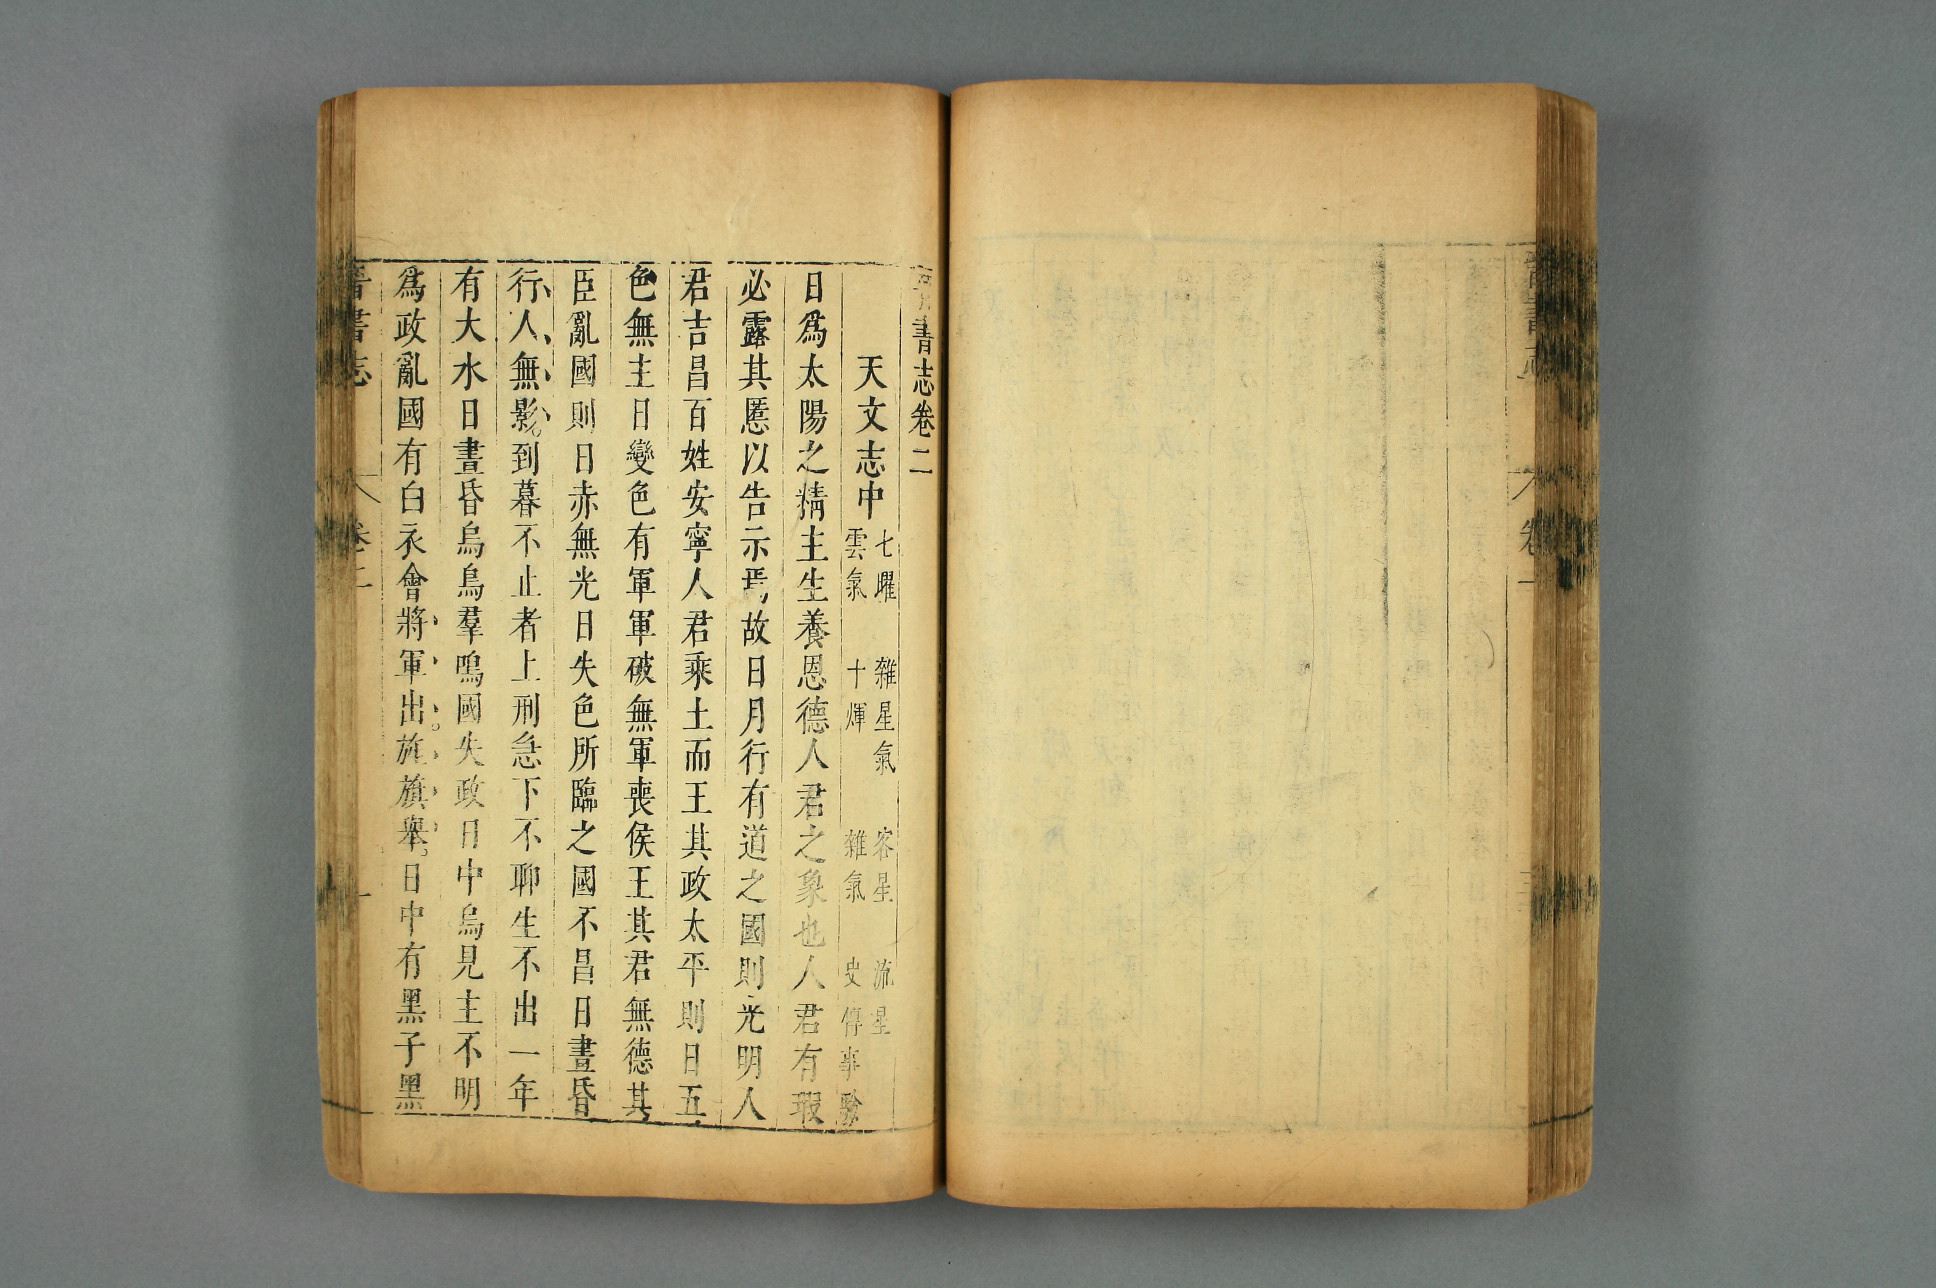 晉書志卷二
天文志中
七曜　雜星氣　客星　流星
雲氣　十煇　雜氣　史傳事驗
日爲太陽之精主生養恩德人君之象也人君有瑕
必露其慝以告示焉故日月行有道之國則光明人
君吉昌百姓安寧人君乘土而王其政太平則日五
色無主日變色有軍軍破無軍喪侯王其君無德其
臣亂國則日赤無光日失色所臨之國不昌日晝昏
行人無影到暮不止者上刑急下不聊生不出一年
有大水日晝昏烏鳥羣鳴國失政日中烏見主不明
爲政亂國有白衣會將軍出旌旗舉日中有黑子黑
晉書志
卷二
一
晉書志
卷一